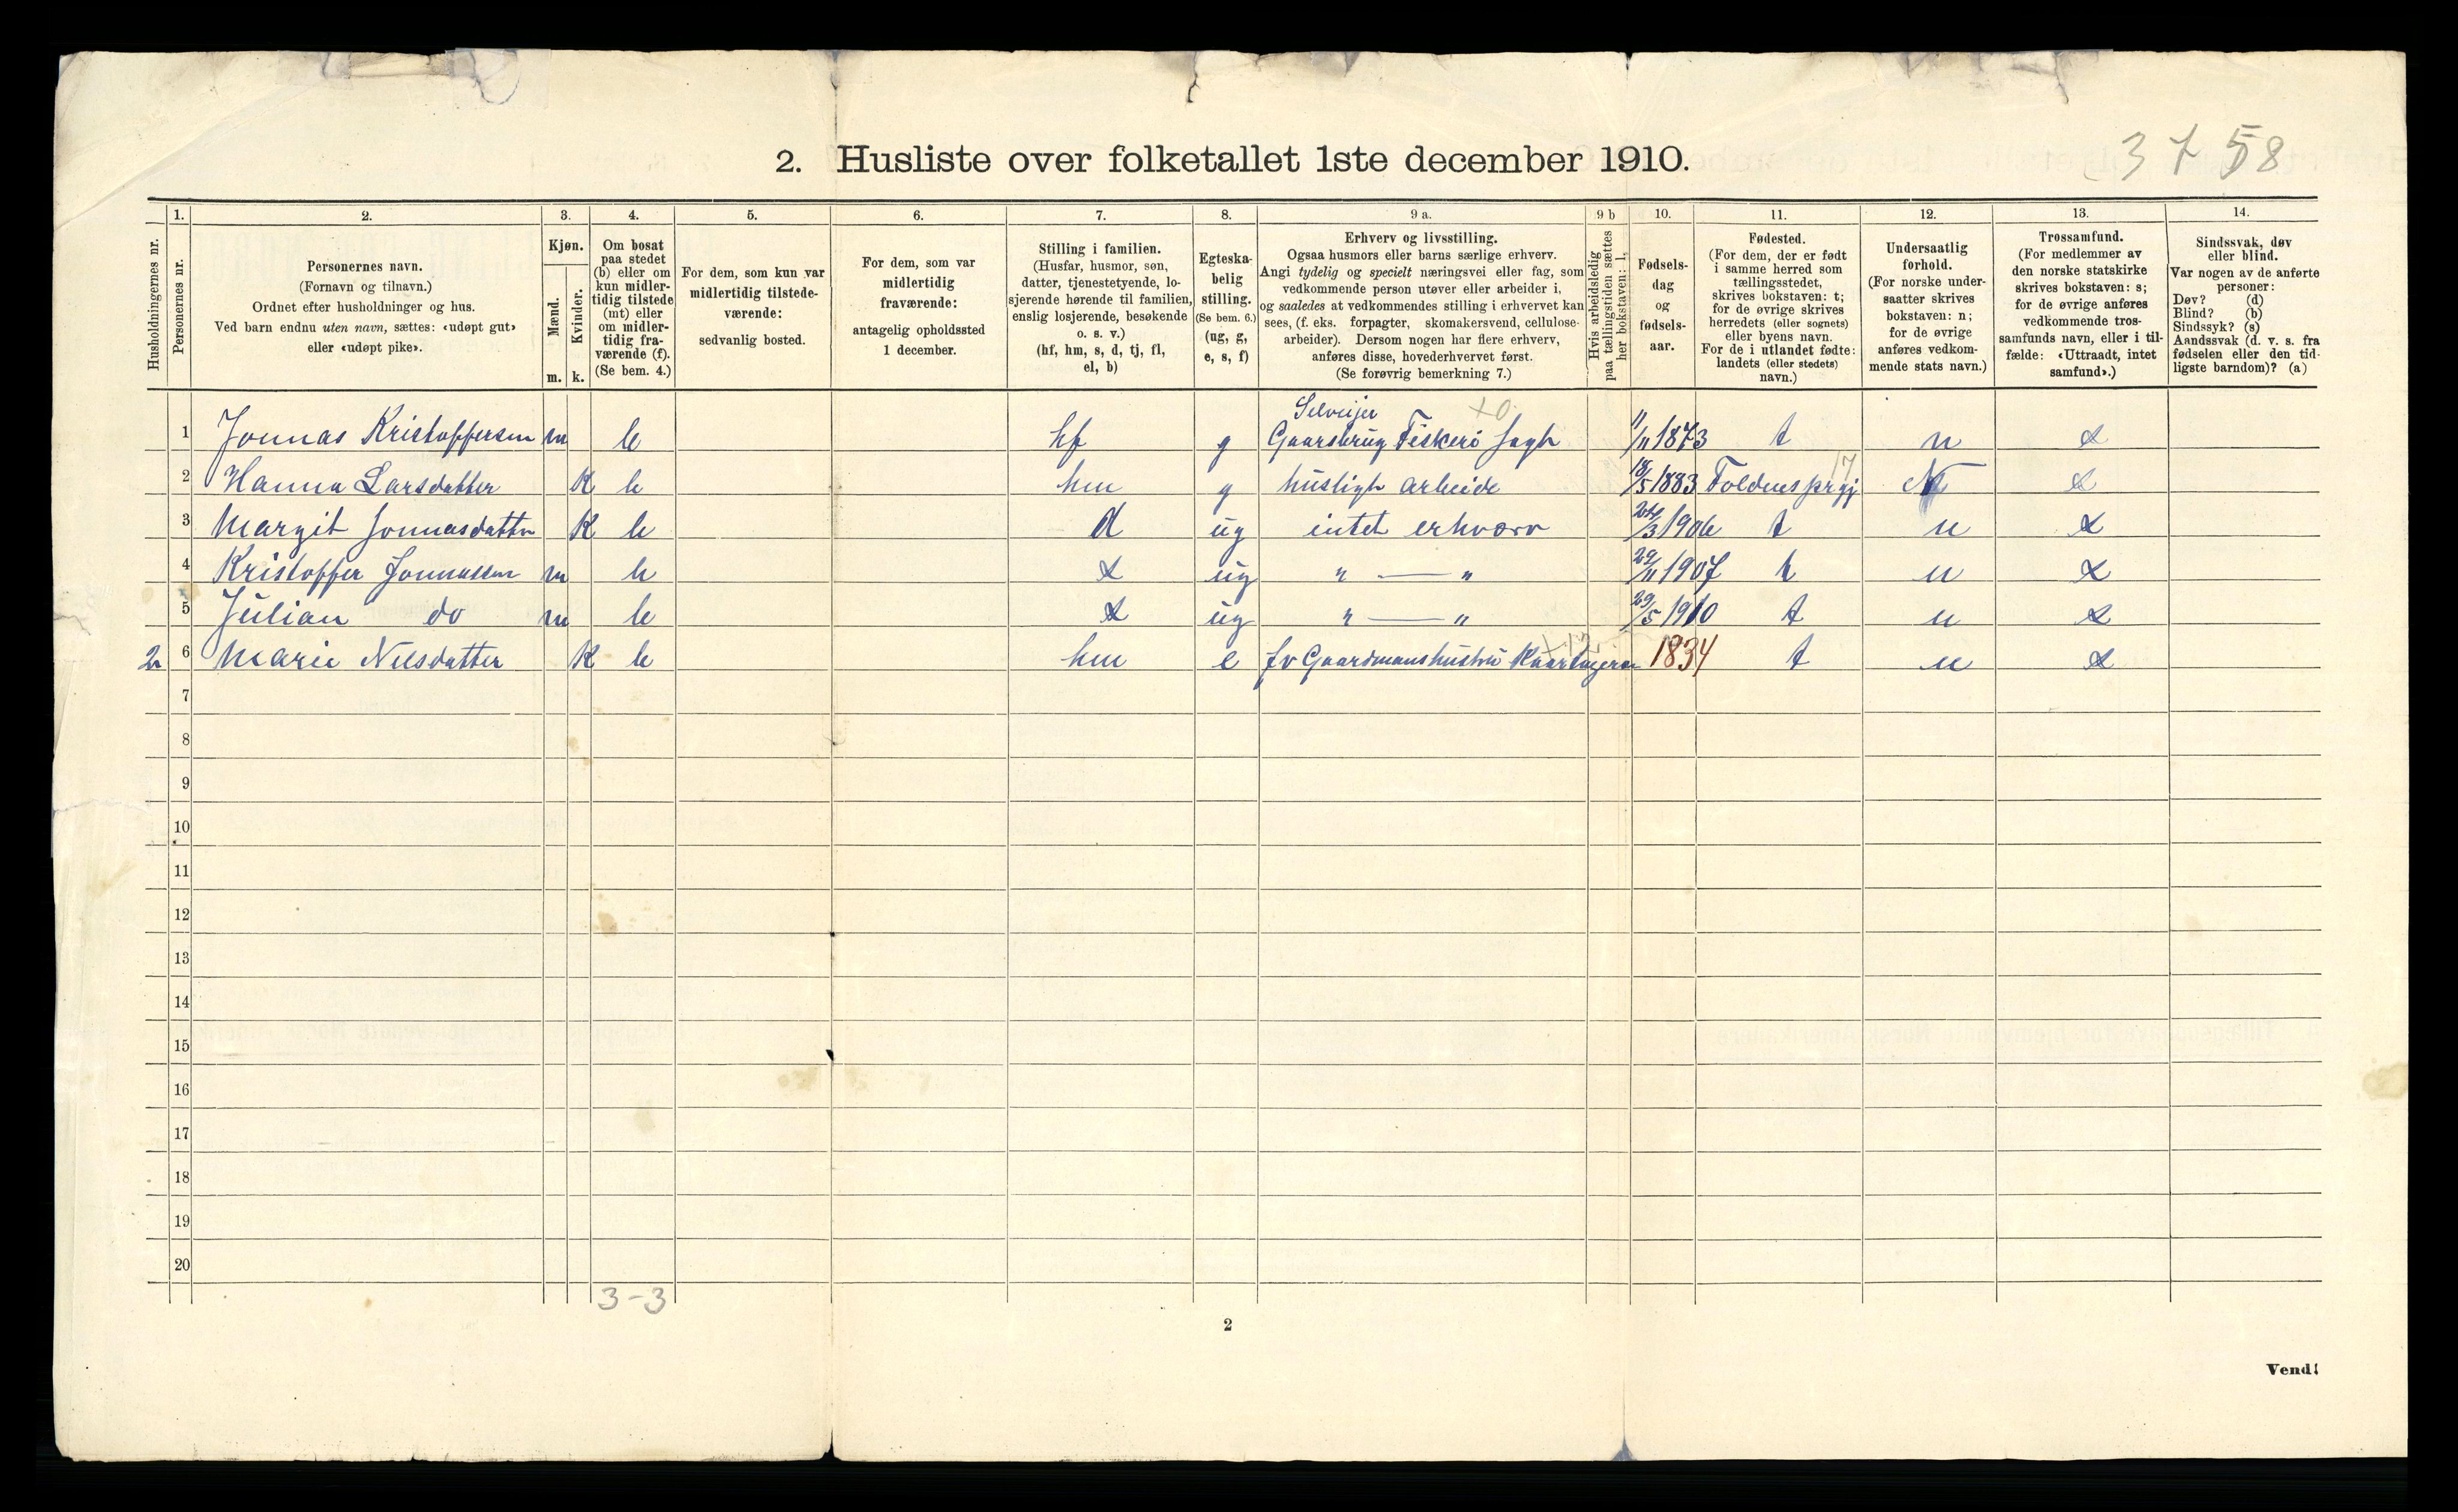 3758
2. Husliste over folketallet 1ste december 1910.
Husholdningernes nr.
1. Personernes nr.
2. Personernes navn.
(Fornavn og tilnavn.)
Ordnet efter husholdninger og hus.
Ved barn endnu uten navn, sættes: «udøpt gut»
eller «udøpt pike».
3. Kjøn.
Mænd. m.
Kvinder. k.
4. Om bosat
paa stedet
(b) eller om
kun midler-
tidig tilstede
(mt) eller
om midler-
tidig fra-
værende (f).
(Se bem. 4.)
5. For dem, som kun var
midlertidig tilstede-
værende:
sedvanlig bosted.
6. For dem, som var
midlertidig
fraværende:
antagelig opholdssted
1 december.
7. Stilling i familien.
(Husfar, husmor, søn,
datter, tjenestetyende, lo-
sjerende hørende til familien,
enslig losjerende, besøkende
o. s. v.)
(hf, hm, s, d, tj, fl,
el, b)
8. Egteska-
belig
stilling.
(Se bem. 6.)
(ug, g,
e, s, f)
9 a. Erhverv og livsstilling.
Ogsaa husmors eller barns særlige erhverv.
Angi tydelig og specielt næringsvei eller fag, som
vedkommende person utøver eller arbeider i,
og saaledes at vedkommendes stilling i erhvervet kan
sees, (f. eks. forpagter, skomakersvend, cellulose-
arbeider). Dersom nogen har flere erhverv,
anføres disse, hovederhvervet først.
(Se forøvrig bemerkning 7.)
9 b Hvis arbeidsledig
paa tællingstiden sættes
her bokstaven: l,
10. Fødsels-
dag
og
fødsels-
aar.
11. Fødested.
(For dem, der er født
i samme herred som
tællingsstedet,
skrives bokstaven: t;
for de øvrige skrives
herredets (eller sognets)
eller byens navn.
For de i utlandet fødte:
landets (eller stedets)
navn.)
12. Undersaatlig
forhold.
(For norske under-
saatter skrives
bokstaven: n;
for de øvrige
anføres vedkom-
mende stats navn.)
13. Trossamfund.
(For medlemmer av
den norske statskirke
skrives bokstaven: s;
for de øvrige anføres
vedkommende tros-
samfunds navn, eller i til-
fælde: «Uttraadt, intet
samfund».)
14. Sindssvak, døv
eller blind.
Var nogen av de anførte
personer:
Døv? (d)
Blind? (b)
Sindssyk? (s)
Aandssvak (d. v. s. fra
fødselen eller den tid-
ligste barndom)? (a)
Selveijer +0
1 Jonnas Kristoffersen m b hf g Gaarsbrug Fiskeri Jagt 11/11 1873 t n s
2 Hanna Larsdatter K b hm g husligt arbeide 18/5 1883 Foldens prgj 17 N s
3 Margit Jonnasdatter K b d ug intet erhværv 24/3 1906 t n s
4 Kristoffer Jonnassen m b s ug " — " 29/11 1907 t n s
5 Julian do m b s ug " — " 29/5 1910 t n s
2 6 Marie Nilsdatter K b hm e fv Gaardmanshustru 1834 t n s
7
8
9
10
11
12
13
14
15
16
17
18
19
20
3-3
2
Vend!